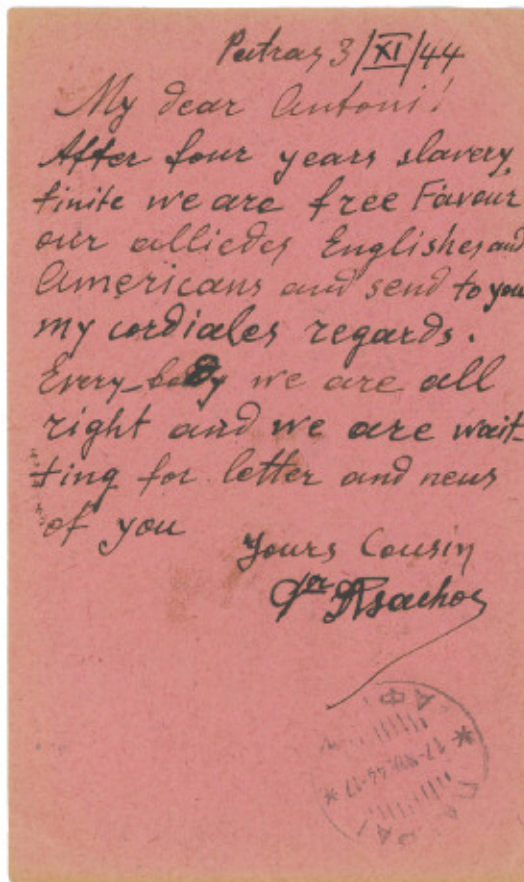 Patras 3/XI/44
My dear Antoni!
After four years slavery,
finite we are free Favour
our alliedes Englishes and
Americans and send to you
my cordiales regards.
Every-body we are all
right and we are wait-
ting for letter and news
of you
Yours Cousin
* 17-44-17 *